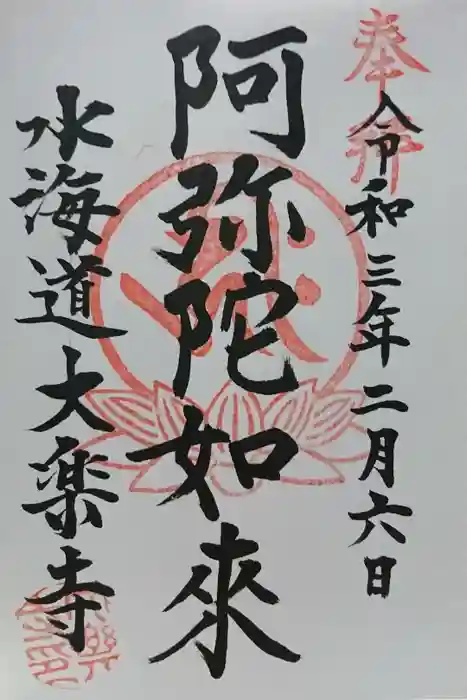 奉拝
令和三年二月六日
阿弥陀如來
水海道大楽寺